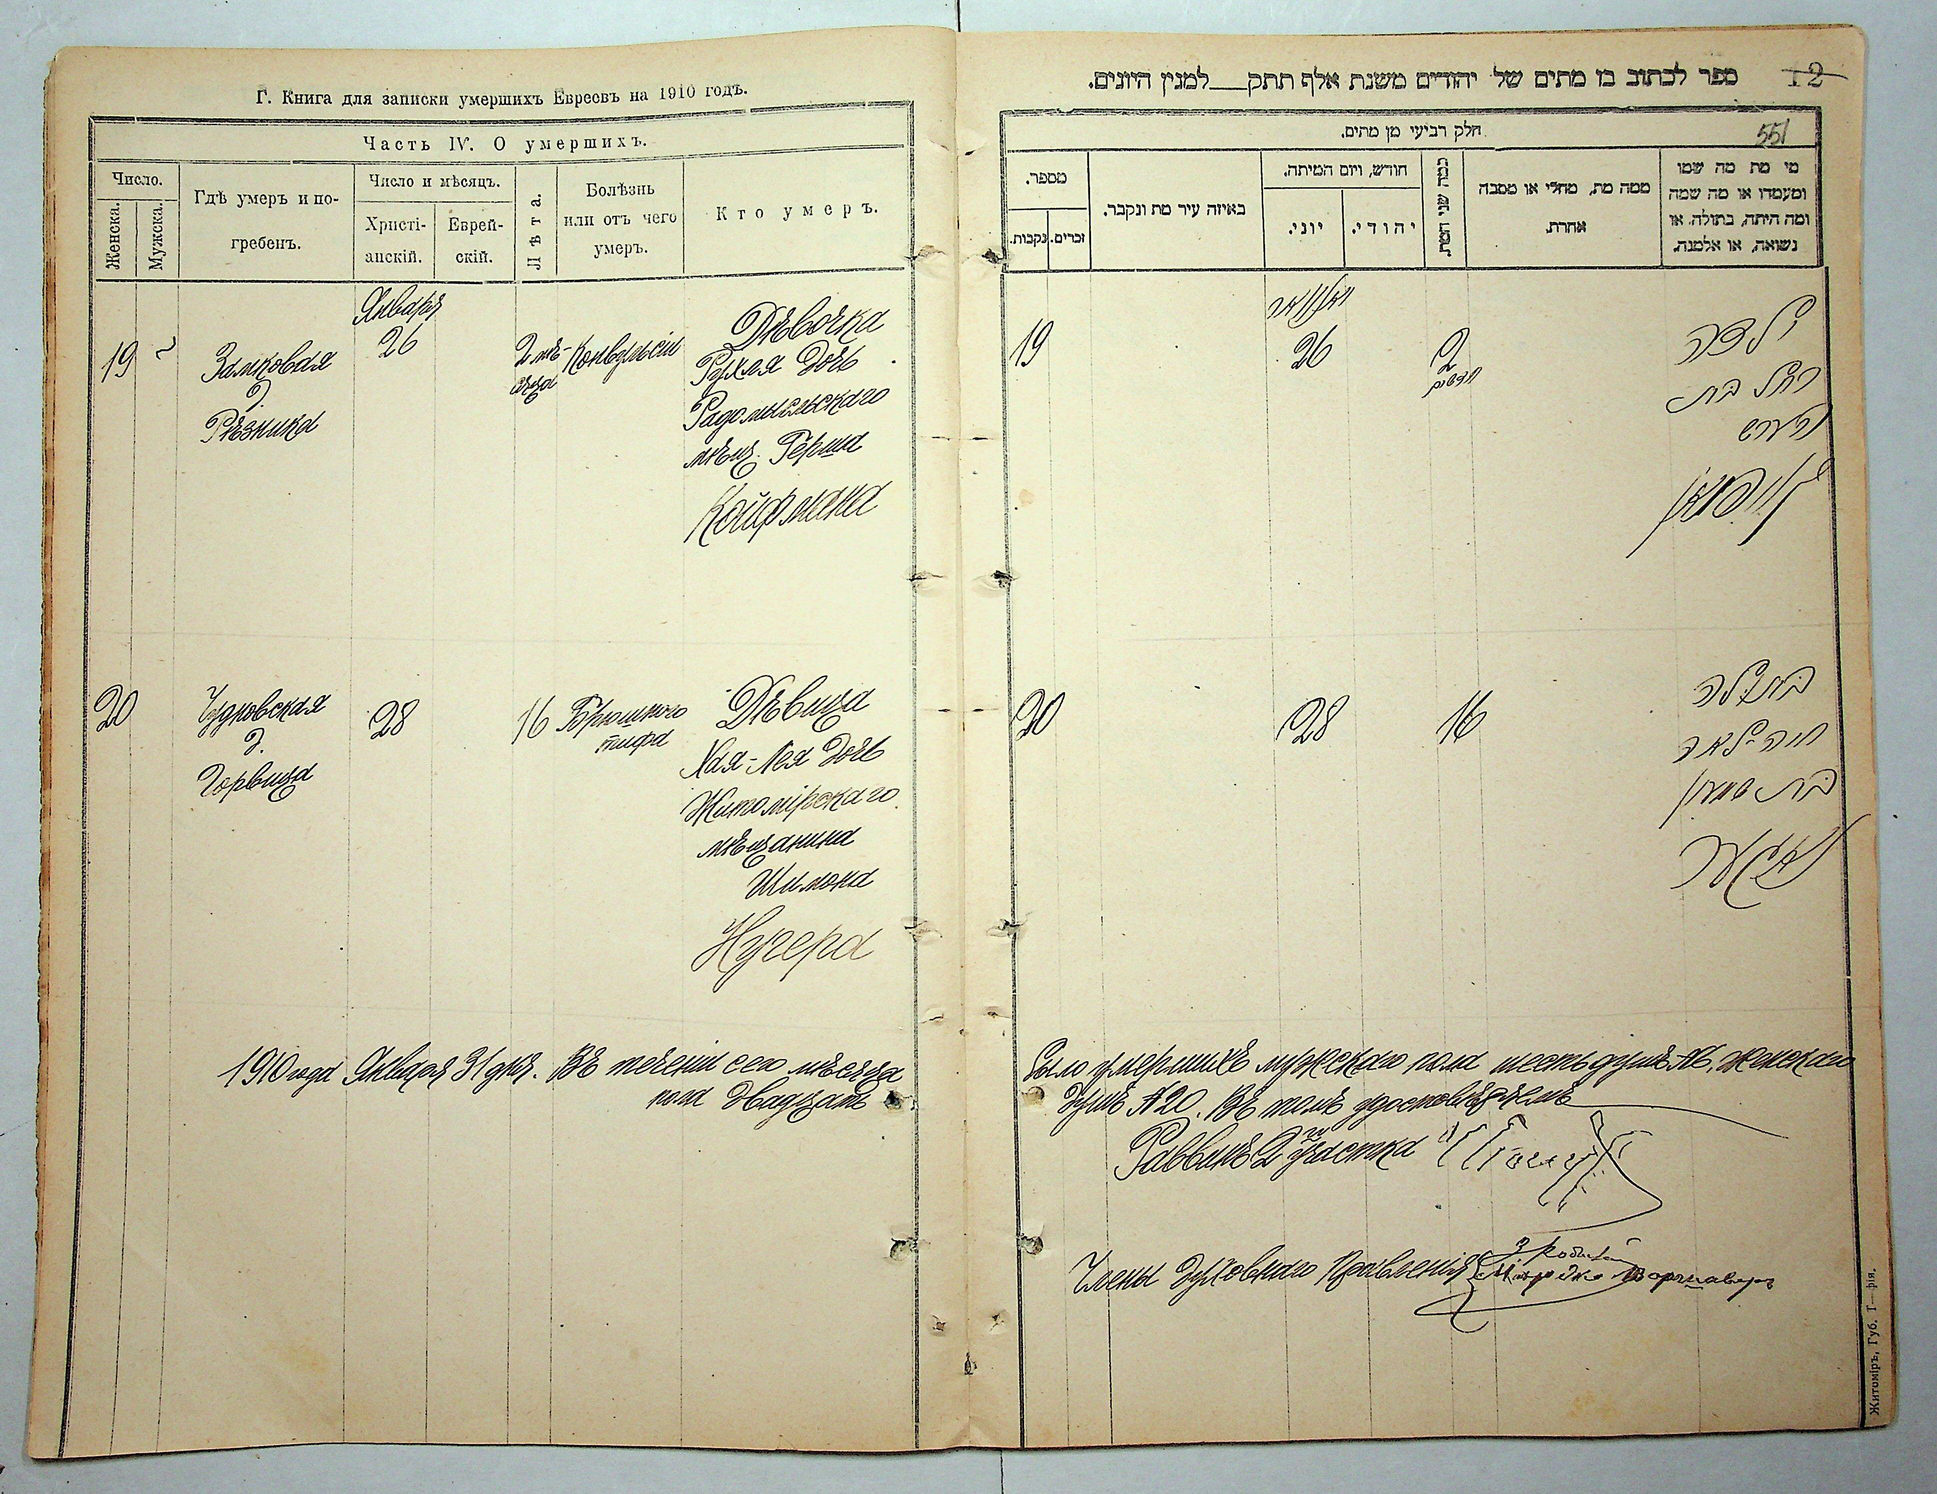 Г. Книга для записки умершихъ Евреевъ на 1910 годъ.
Часть IV. О умершихъ.
Число.
Женска.
Мужска.
Гдѣ умеръ и по-
гребенъ.
Число и мѣсяцъ.
Христі-
анскій.
Еврей-
скій.
Лѣта.
Болѣзнь
или отъ чего
умеръ.
Кто умеръ.
Января
19
Замковая
д.
Рѣзника
26
2 мѣ-
сяца
Конвульсіи
Дѣвочка
Рухля дочь
Радомысльскаго
мѣщ. Герша
Койфмана
20
Чудновская
д.
Горвица
28
16
Брюшного
тифа
Дѣвица
Хая-Лея дочь
Житомірскаго
мѣщанина
Шимона
Нугера
1910 года Января 31 дня. Въ теченіи сего мѣсяца
пола двадцать
12
ספר לכתוב בו מתים של יהודים משנת אלף תתק למנין היונים.
551
חלק רביעי מן מתים.
מספר.
נקבות.
זכרים.
באיזה עיר מת ונקבר.
חודש, ויום המיתה.
יוני.
יהודי.
כמה שני המת.
ממה מת, מחלי או מסבה
אחרת.
מי מת מה שמו
ומעמדו או מה שמה
ומה היתה, בתולה. או
נשואה, או אלמנה.
יאנואר
19
26
2
חדשים
ילדה
רחל בת
הערש
קויפמאן
20
28
16
בתולה
חיה-לאה
בת שמעון
было умершихъ мужскаго пола шесть душъ №6, женскаго
душъ №20. Въ томъ удостовѣряемъ
Раввинъ 2го участка
Члены духовнаго Правленія
Житоміръ, Губ. Т—фія.